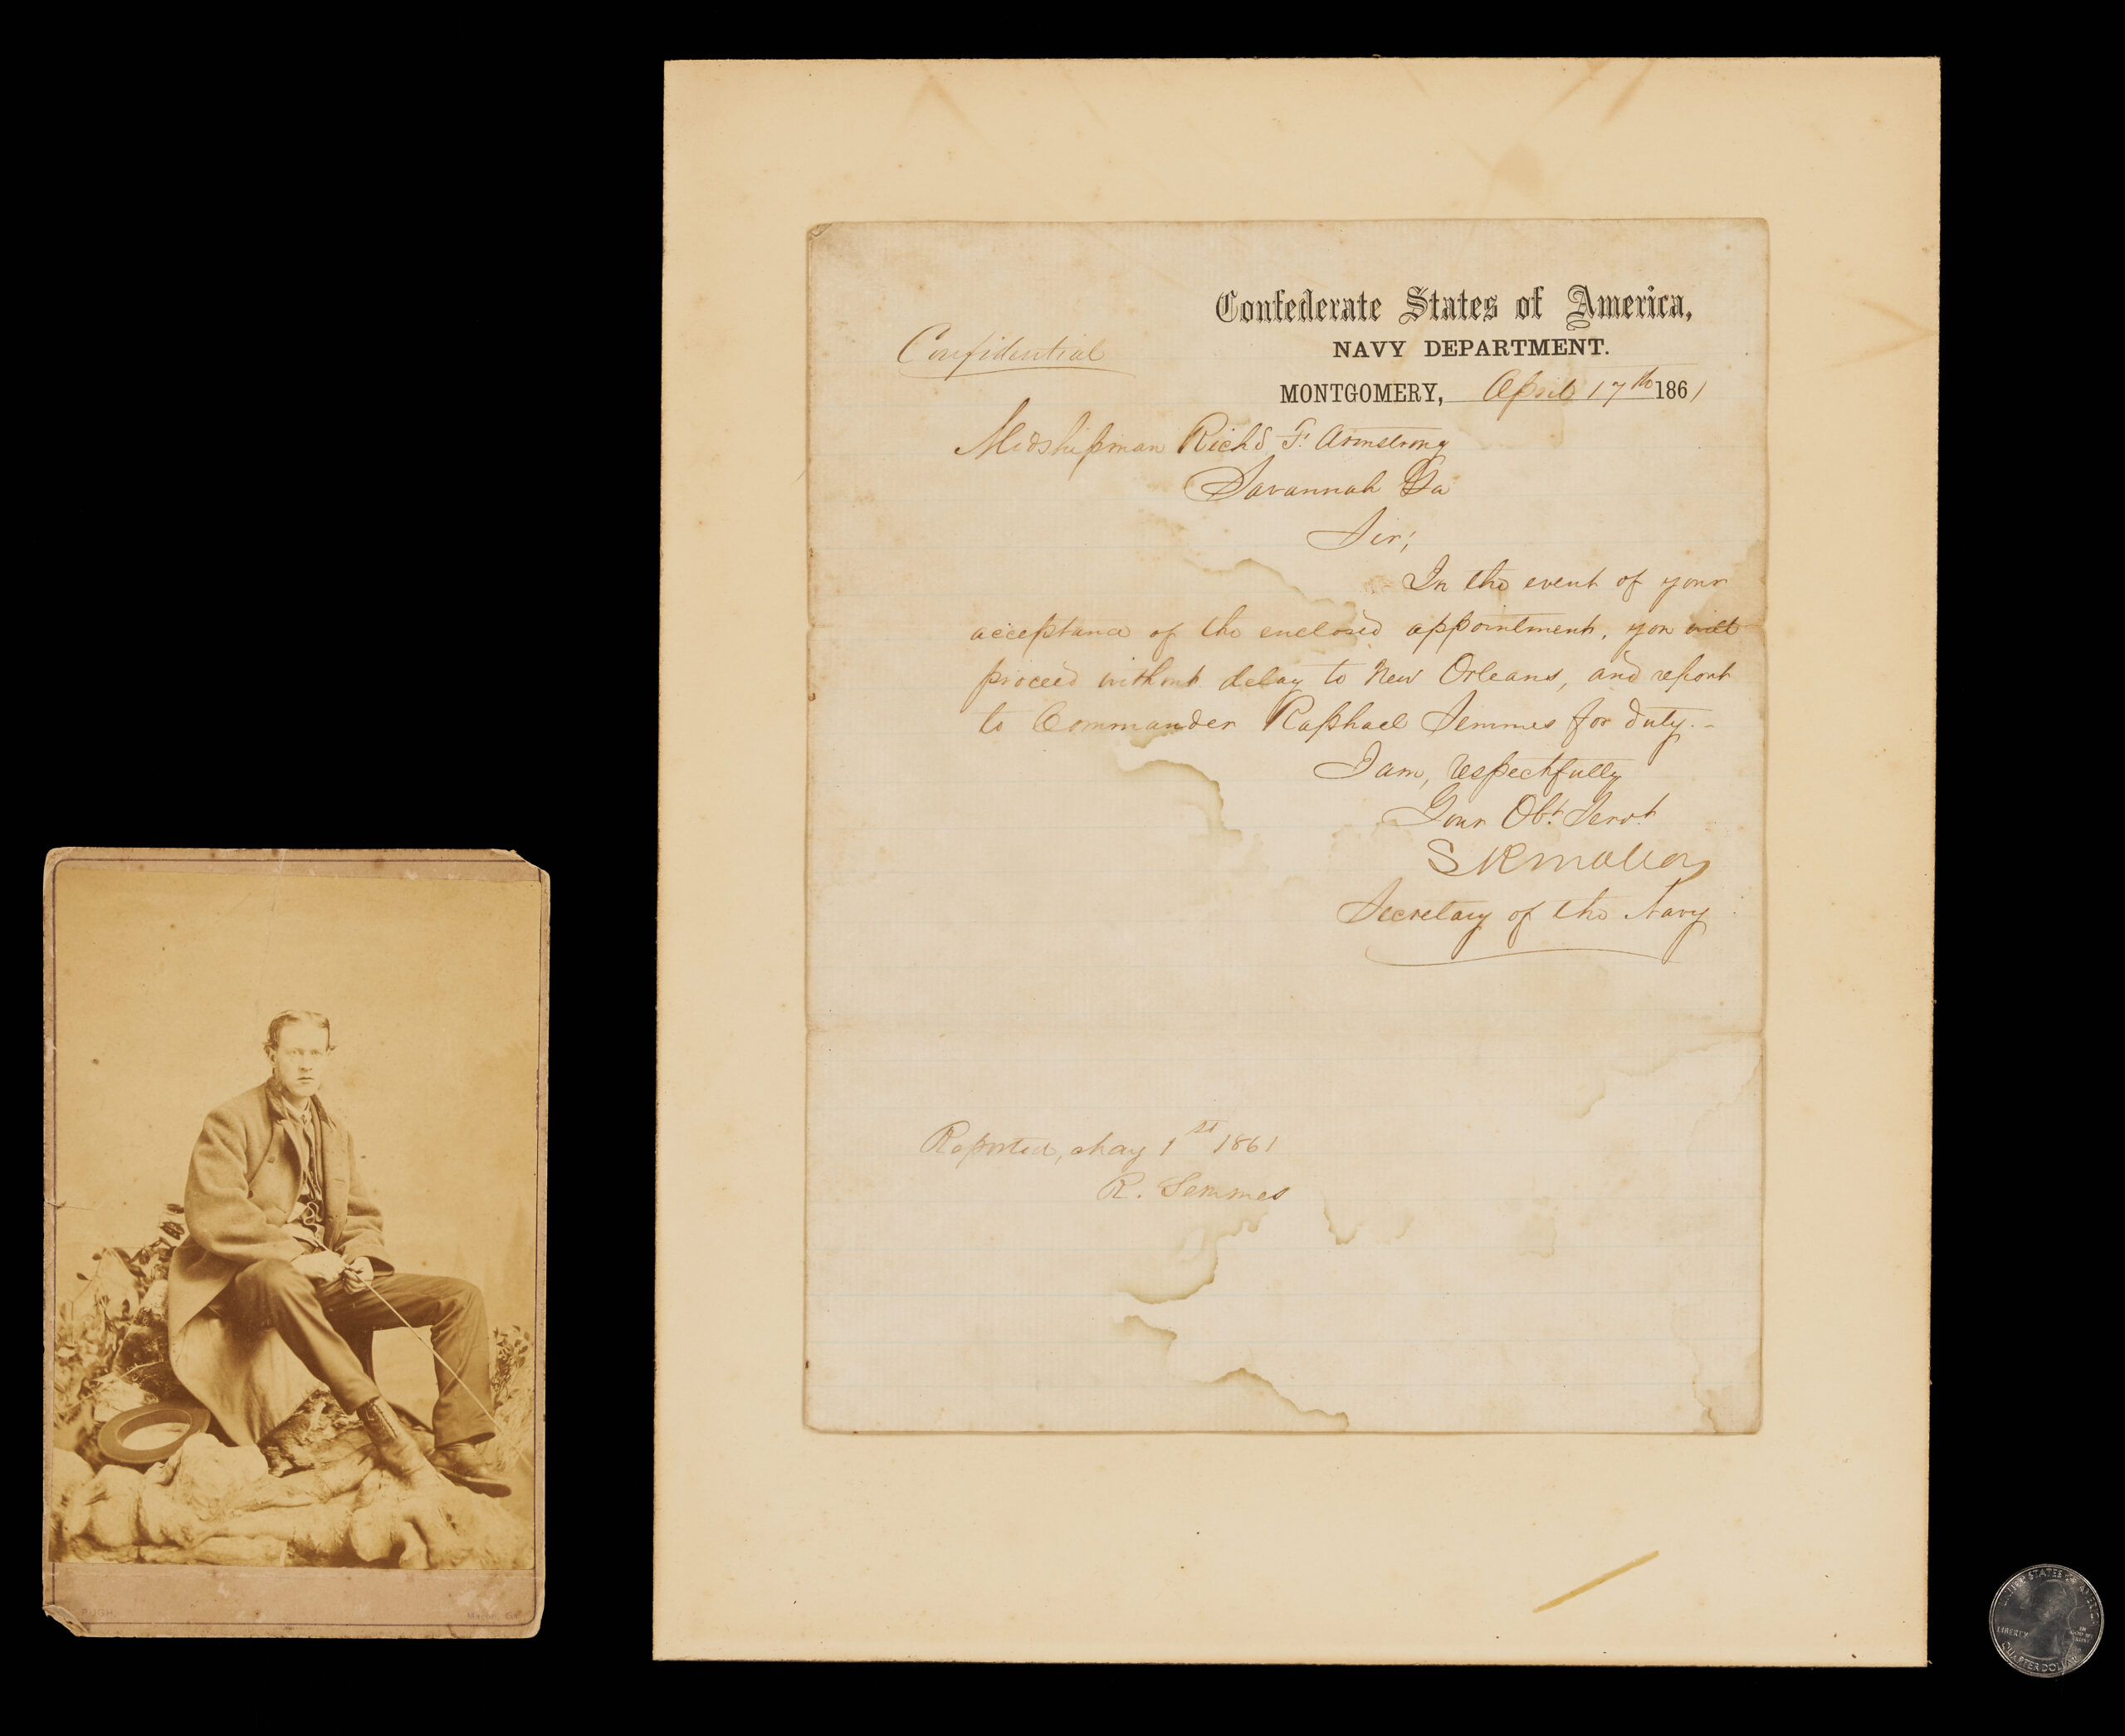 Confederate States of America,
NAVY DEPARTMENT.
Confidential
MONTGOMERY, April 17th 1861
Midshipman Richd F. Armstrong
Savannah Ga
Sir;
In the event of your
acceptance of the enclosed appointment, you will
proceed without delay to New Orleans, and report
to Commander Raphael Semmes for duty.-
I am, respectfully
Your Obt. Servt
S R Mallory
Secretary of the Navy
Reported, May 1st 1861
R. Semmes
PUGH,
Macon, Ga.
UNITED STATES OF AMERICA
LIBERTY
IN GOD WE TRUST
QUARTER DOLLAR